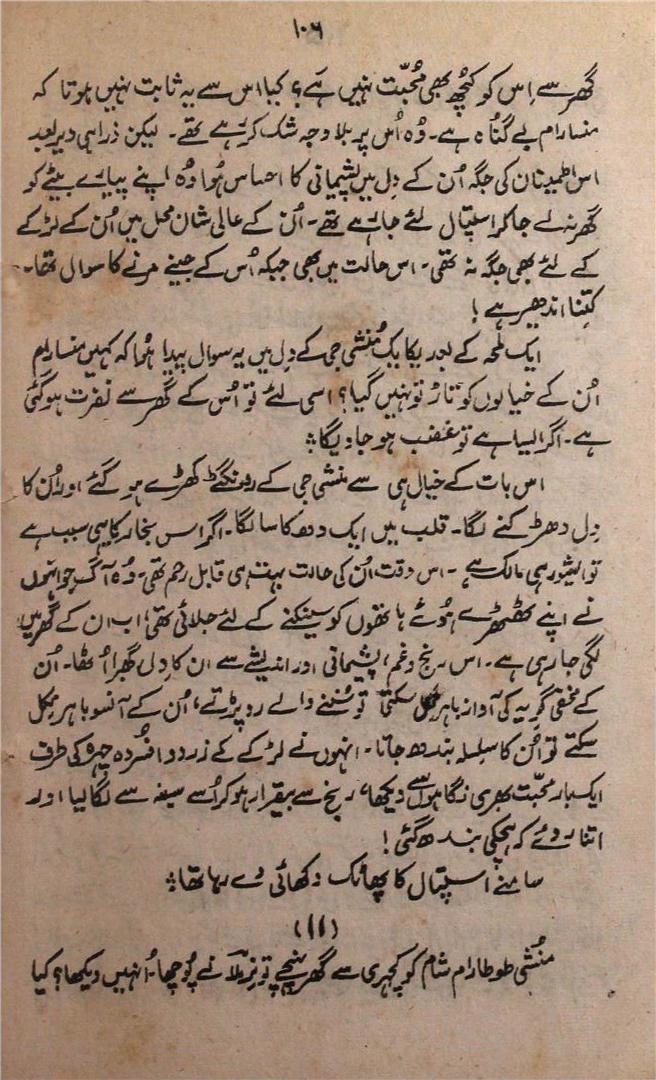 ۱۰۶
گھر سے اِس کو کچُھ بھی مُحبّت نہیں ہَے؟ کیا اس سے یہ ثابت نہیں ہوتا کہ
منسارام بے گُناہ ہے۔ وُہ اُس پر بلا وجہ شک کر رہے تھے۔ لیکن ذرا ہی دیر بعد
اس اطمینان کی جگہ اُن کے دِل میں پشیمانی کا احساس ہُوا وُہ اپنے پیارے بیٹے کو
گھر نہ لے جا کر اسپتال لئے جا رہے تھے۔ اُن کے عالی شان محل میں اُن کے لڑکے
کے لئے بھی جگہ نہ تھی۔ اس حالت میں بھی جبکہ اُس کے جینے مرنے کا سوال تھا۔
کِتنا اندھیر ہے!
ایک لمحہ کے بعد یکایک مُنشی جی کے دِل میں یہ سوال پیدا ہُوا کہ کہیں منسارام
اُن کے خیالوں کو تاڑ تو نہیں گیا؟ اسی لئے تو اُس کے گھر سے نفرت ہو گئی
ہے۔ اگر ایسا ہے تو غضب ہو جاویگا؛
اس بات کے خیال ہی سے منشی جی کے رونگٹے کھڑے ہو گئے اور اُن کا
دِل دھڑکنے لگا۔ قلب میں ایک دھکا سا لگا۔ اگر اس بخار کا یہی سبب ہے
تو ایشور ہی مالک ہے۔ اس وقت اُن کی حالت بہت ہی قابل رحم تھی۔ وُہ آگ جو انہوں
نے اپنے ٹھٹھرے ہُوئے ہاتھوں کو سینکنے کے لئے جلائی تھی؛ اب ان کے گھر میں
لگی جا رہی ہے۔ اس رنج و غم، پشیمانی اور اندیشے سے ان کا دِل گھبرا اُٹھا۔ اُن
کے مخفی گریہ کی آواز باہر نکل سکتی تو سُننے والے رو پڑتے، اُن کے آنسو باہر نکل
سکتے تو اُن کا سلسلہ بندھ جاتا۔ انہوں نے لڑکے کے زرد و افسُردہ چہرہ کی طرف
ایک بار محبّت بھری نگاہوں سے دیکھا، رنج سے بیقرار ہو کر اُسے سینے سے لگا لیا اور
اتنا روئے کہ ہچکی بندھ گئی!
سامنے اسپتال کا پھاٹک دکھائی دے رہا تھا؛
(۱۱)
مُنشی طوطارام شام کو کچہری سے گھر پہنچے تو نرملا نے پُوچھا۔ اُنہیں دیکھا؟ کیا